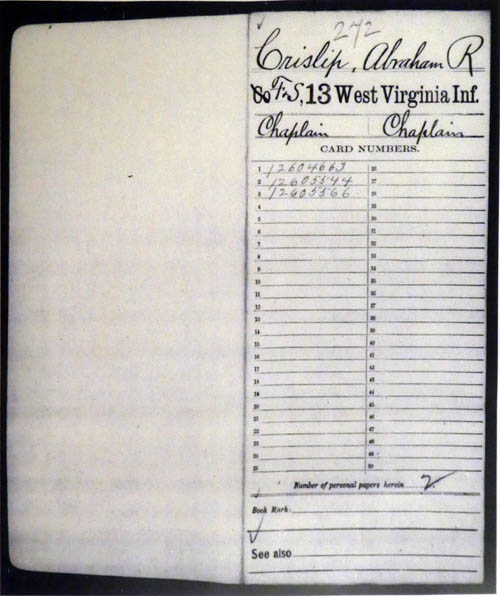 272
Crislip, Abraham R
Co F&S, 13 West Virginia Inf.
Chaplain | Chaplain
CARD NUMBERS.
1 12604663 26
2 12605544 27
3 12605566 28
4 29
5 30
6 31
7 32
8 33
9 34
10 35
11 36
12 37
13 38
14 39
15 40
16 41
17 42
18 43
19 44
20 45
21 46
22 47
23 48
24 49
25 50
Number of personal papers herein 2
Book Mark:
See also